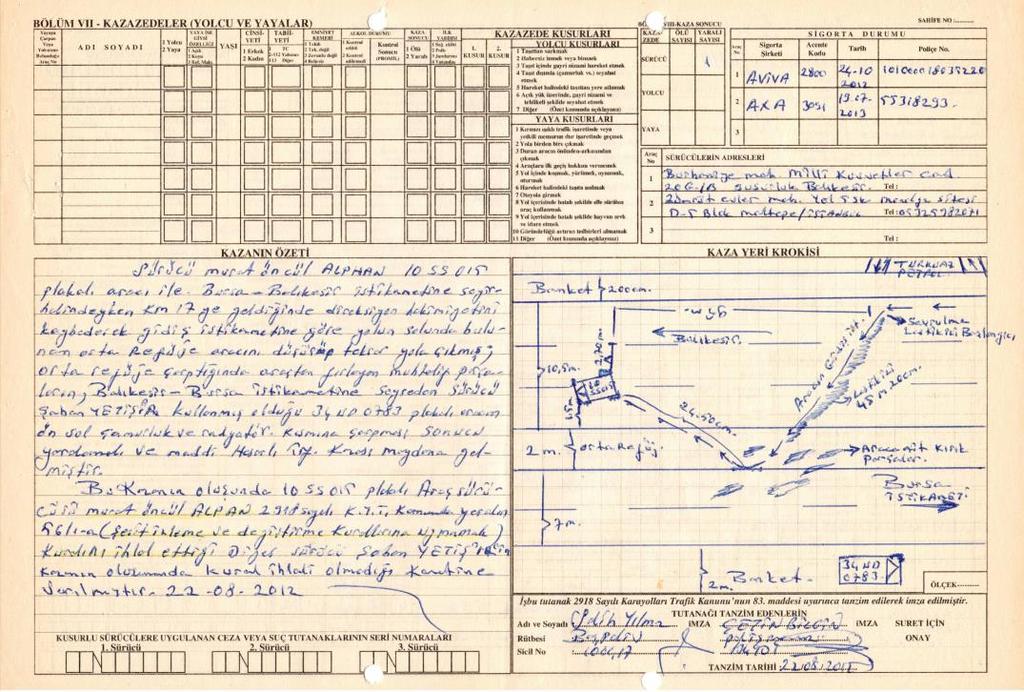 BÖLÜM VII - KAZAZEDELER (YOLCU VE YAYALAR)
SAHİFE NO :
ADI SOYADI
1 Yolcu
2 Yaya
YAŞI
CİNSİ-
YETİ
1 Erkek
2 Kadın
TABİİ-
YETİ
EMNİYET
KEMERİ
ALKOL DURUMU
Kontrol
Sonucu
(PROMİL)
KAZA
SONUCU
1 Ölü
2 Yaralı
KAZAZEDE KUSURLARI
1.
KUSUR
2.
KUSUR
YOLCU KUSURLARI
1 Taşıttan sarkmak
2 Habersiz inmek veya binmek
3 Taşıt içinde gayri nizami hareket etmek
5 Hareket halindeki taşıttan yere atlamak
6 Açık yük üzerinde, gayri nizami ve
tehlikeli şekilde seyahat etmek
7 Diğer (Özet kısmında açıklayınız)
YAYA KUSURLARI
1 Kırmızı ışıklı trafik işaretinde veya
yetkili memurun dur işaretinde geçmek
2 Yola birden bire çıkmak
3 Duran aracın önünden-arkasından
çıkmak
4 Araçlara ilk geçiş hakkını vermemek
5 Yol içinde koşmak, yürümek, oynamak,
oturmak
6 Hareket halindeki taşıta asılmak
7 Otoyola girmek
8 Yol içerisinde hatalı şekilde elle sürülen
araç kullanmak
9 Yol içerisinde hatalı şekilde hayvan sevk
ve idare etmek
10 Görünürlüğü artırıcı tedbirleri almamak
11 Diğer (Özet kısmında açıklayınız)
KAZA SONUCU
KAZA-
ZEDE
ÖLÜ
SAYISI
YARALI
SAYISI
SÜRÜCÜ
1
YOLCU
YAYA
SİGORTA DURUMU
Araç
No
Sigorta
Şirketi
Acente
Kodu
Tarih
Poliçe No.
1 AVİVA 2800 24-10
2012
2 AXA 3091 19.07-
2013 55318293.
3
Araç
No
SÜRÜCÜLERİN ADRESLERİ
1 Burhaniye mah. Milli Kuvvetler cad.
Susurluk Balıkesir. Tel :
2
D-5 Blok maltepe/İstanbul Tel :
3
Tel :
KAZANIN ÖZETİ
Sürücü murat öncül ALPHAN 10 SS 015
plakalı aracı ile. Bursa - Balıkesir istikametine seyir
halindeyken Km 17 ye geldiğinde direksiyon hakimiyetini
kaybederek gidiş istikametine göre yolun solunda bulu-
nan orta Refüje aracını düşürüp tekrar yola çıkmış,
orta refüje çarptığında araçtan fırlayan muhtelif parça-
ların, Balıkesir - Bursa istikametine Seyreden Sürücü
Şaban YETİŞİR'in Kullanmış olduğu 34 ND 0783 plakalı aracın
ön sol çamurluk ve radyatör. Kısmına çarpması Sonucu
yaralamalı ve maddi Hasarlı Trf. Kazası meydana gel-
miştir.
Bu Kazanın oluşunda 10 SS 015 plakalı Araç sürü-
cüsü murat öncül ALPAN 2918 sayılı K.T.K. Kanununda yeralan
56/1-a (Şerit izleme ve değiştirme Kurallarına uymamak)
Kuralını ihlal ettiği Diğer sürücü Şaban YETİŞİR'in
Kazanın oluşumunda kural ihlali olmadığı Kanaatine
Varılmıştır. 22-08-2012
KUSURLU SÜRÜCÜLERE UYGULANAN CEZA VEYA SUÇ TUTANAKLARININ SERİ NUMARALARI
1. Sürücü 2. Sürücü 3. Sürücü
KAZA YERİ KROKİSİ
TURKUAZ
PETROL
Banket 200cm.
Balıkesir.
Savrulma
Lastik izi Başlangıcı
10,5m.
10
SS015
24.50cm.
Lastik izi
45 m. 20cm.
2 m. orta Refüj.
Araca ait Kırık
Parçalar.
Bursa
İSTİKAMETİ
7m.
2m. Banket.
34 ND
0783
ÖLÇEK
İşbu tutanak 2918 Sayılı Karayolları Trafik Kanunu'nun 83. maddesi uyarınca tanzim edilerek imza edilmiştir.
TUTANAĞI TANZİM EDENLERİN
Adı ve Soyadı Yılmaz İMZA ÇETİN BİLGİN İMZA SURET İÇİN
Rütbesi ONAY
Sicil No
TANZİM TARİHİ :